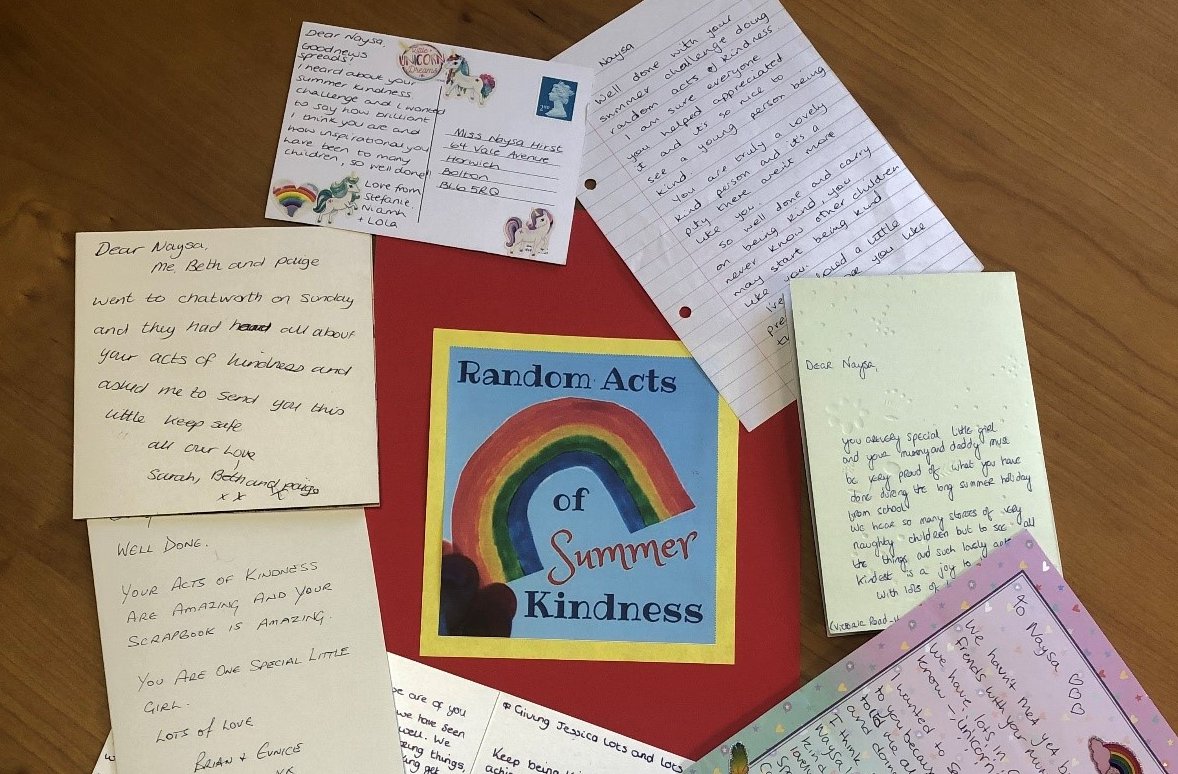 Dear Naysa,
Good news
spreads!
I heard about your
summer kindness
challenge and I wanted
to say how brilliant
I think you are and
how inspirational you
have been to many
children, so well done!
Love from
Stefanie,
Niamh
+ Lola
Little
UNICORN
Dreams
2ND
Miss Naysa Hirst
64 Vale Avenue
Horwich
Bolton
BL6 5RQ
Naysa
Well done with your
summer challenge doing
random acts of kindness
I am sure everyone
you helped appreciated
I and it's so nice to
see a young person being
kind
You are truly a lovely
kind person and it's a
pity there aren't more
like you.
So well done and carry
on being kind, you
never know other children
may start being kind
like you.
loved a little
you like
Dear Naysa,
Me, Beth and paige
went to chatworth on Sunday
and they had all about
your acts of kindness and
asked me to send you this
little keep safe
all our love
Sarah, Beth and paige
x x x
WELL DONE.
YOUR ACTS OF KINDNESS
ARE AMAZING AND YOUR
SCRAPBOOK IS AMAZING.
YOU ARE ONE SPECIAL LITTLE
GIRL.
LOTS OF LOVE
BRIAN & EUNICE
Random Acts
of
Summer
Kindness
Dear Naysa,
you are very special little girl
and your mummy and daddy must
be very proud of what you have
done during the long summer holiday
from school
We hear so many stories of very
naughty children but to see all
the things and such lovely acts
kindest is a joy to
With lots of
Victoria Road
are of you
we have seen
well. We
things,
get
Giving Jessica lots and lots
Keep being
To Naysa
We havn't met yet
friends with your
We have lots in
know - unicorn
I wanted to
to you
told me
and
I think
Naysa